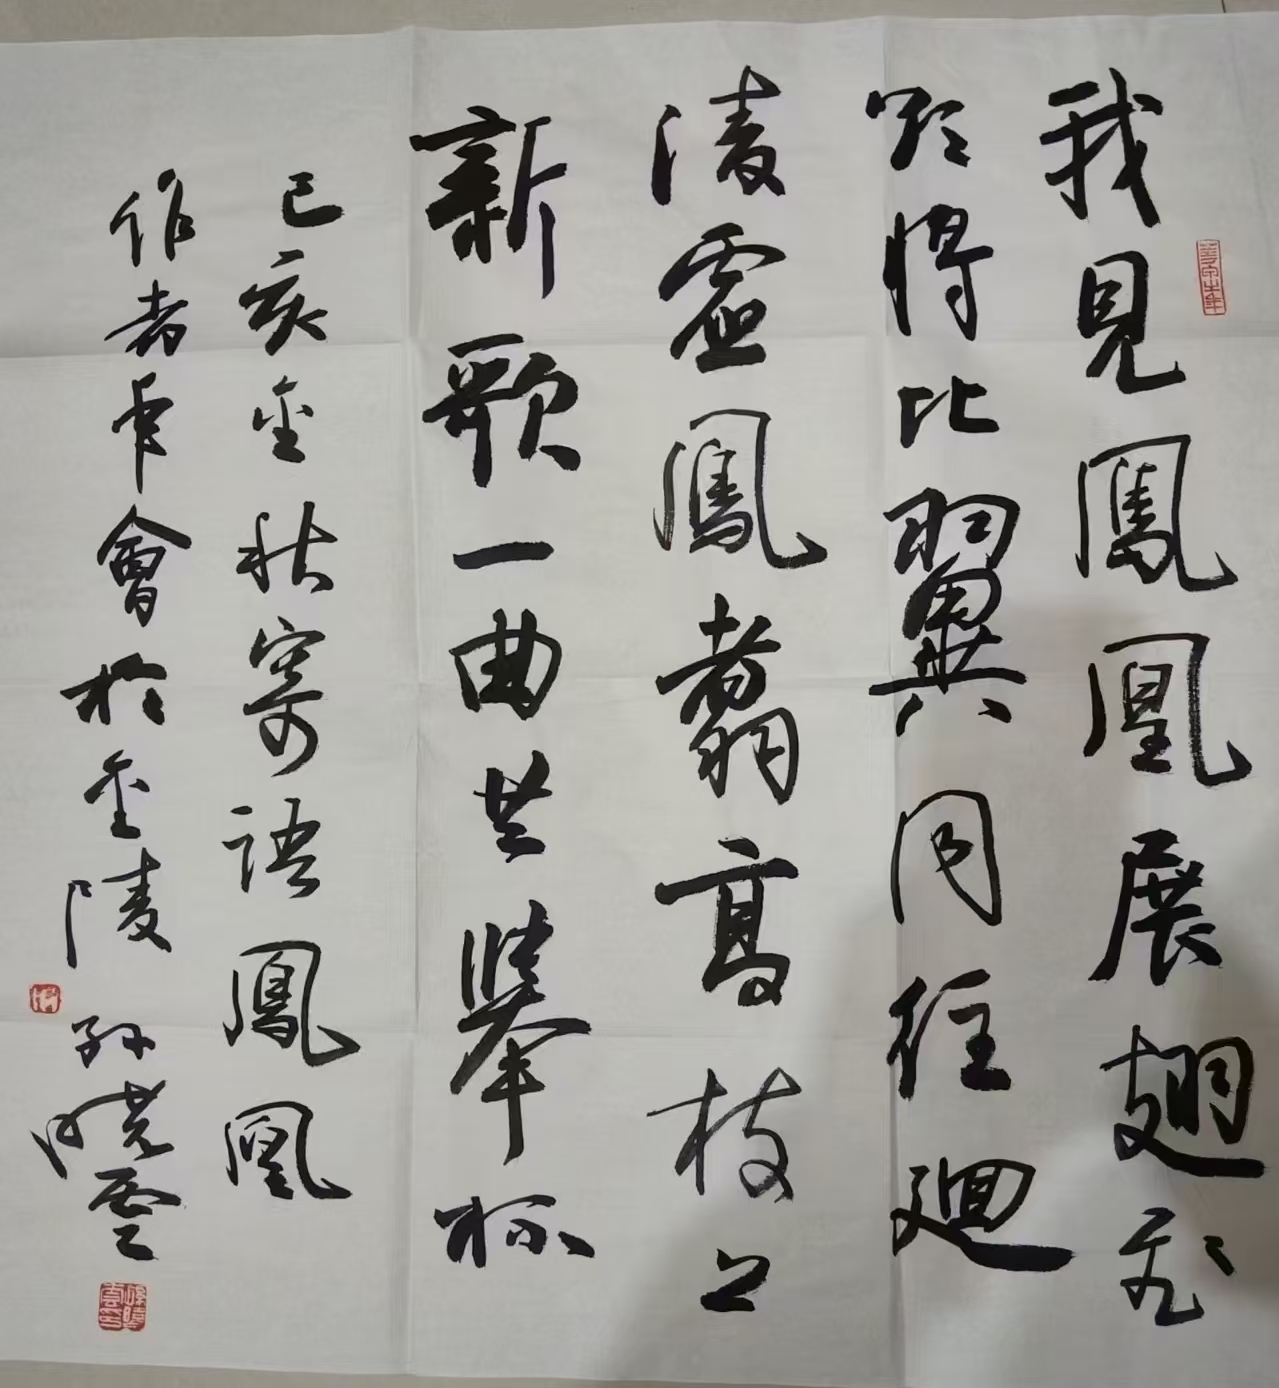 我見鳳凰展翅飛
盼得比翼同往迴
凌虛鳳翥高枝上
新歌一曲共舉杯
己亥金秋寄語鳳凰
作者年會於金陵
孙曉雲